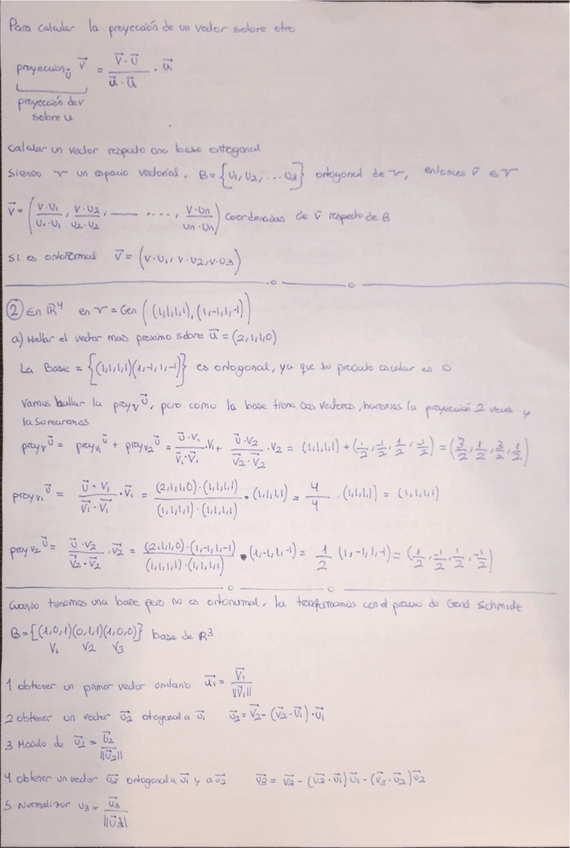 Para calcular la proyección de un vector sobre otro
proyección_u⃗ v⃗ = (v⃗·u⃗)/(u⃗·u⃗) · u⃗
proyección de v
sobre u
Calcular un vector respecto una base ortogonal
Siendo V un espacio vectorial, B={u₁, u₂, ... u₃} ortogonal de V, entonces v⃗ ∈ V
v⃗ = ((v·u₁)/(u₁·u₁), (v·u₂)/(u₂·u₂), —— ..., (v·un)/(un·un)) coordenadas de v⃗ respecto de B
Si es ortonormal v⃗ = (v·u₁, v·u₂, v·u₃)
② En ℝ⁴ en V = Gen ((1,1,1,1), (1,-1,1,-1))
a) Hallar el vector mas proximo sobre u⃗ = (2,1,1,0)
La Base = {(1,1,1,1)(1,-1,1,-1)} es ortogonal, ya que su producto escalar es 0
Vamos hallar la proy_v u⃗, pero como la base tiene dos vectores, haremos la proyección 2 veces y
la sumaremos
proy_v u⃗ = proy_v₁ u⃗ + proy_v₂ u⃗ = (u⃗·v₁)/(v⃗₁·v⃗₁)·v₁ + (u⃗·v₂)/(v⃗₂·v⃗₂)·v₂ = (1,1,1,1) + (1/2, -1/2, 1/2, -1/2) = (3/2, 1/2, 3/2, 1/2)
proy_v₁ u⃗ = (u⃗·v₁)/(v⃗₁·v⃗₁)·v⃗₁ = ((2,1,1,0)·(1,1,1,1))/((1,1,1,1)·(1,1,1,1)) · (1,1,1,1) = 4/4 · (1,1,1,1) = (1,1,1,1)
proy_v₂ u⃗ = (u⃗·v₂)/(v⃗₂·v⃗₂)·v⃗₂ = ((2,1,1,0)·(1,-1,1,-1))/((1,1,1,1)·(1,1,1,1)) · (1,-1,1,-1) = 1/2 (1,-1,1,-1) = (1/2, -1/2, 1/2, -1/2)
Cuando tenemos una base pero no es ortonormal, la transformamos con el proceso de Schmidt
B={(1,0,1)(0,1,1)(1,0,0)} base de ℝ³
V₁ V₂ V₃
1 obtener un primer vector unitario u⃗₁ = v⃗₁/||v⃗₁||
2 obtener un vector u⃗₂ ortogonal a u⃗₁ u⃗₂ = v⃗₂ - (v⃗₂·u⃗₁)·u⃗₁
3 Modulo de u⃗₂ = u⃗₂/||u⃗₂||
4 obtener un vector u⃗₃ ortogonal a u⃗₁ y a u⃗₂ u⃗₃ = v⃗₃ - (v⃗₃·u⃗₁)u⃗₁ - (v⃗₃·u⃗₂)u⃗₂
5 Normalizar u₃ = u⃗₃/||u⃗₃||